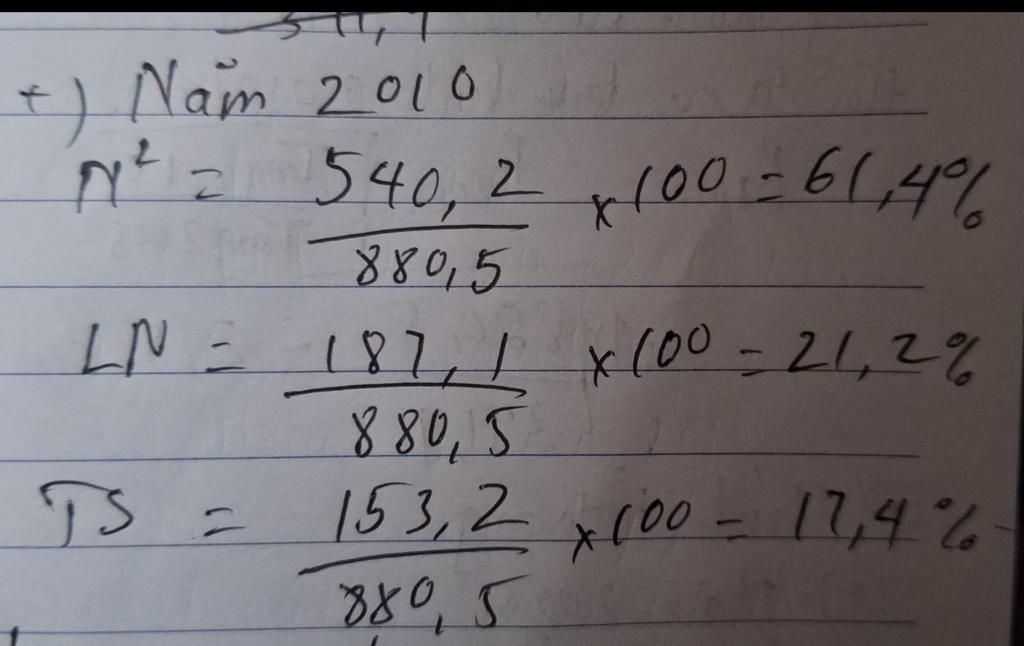 +) Năm 2010
N² = 540,2 / 880,5 × 100 = 61,4%
LN = 187,1 / 880,5 × 100 = 21,2%
TS = 153,2 / 880,5 × 100 = 17,4%